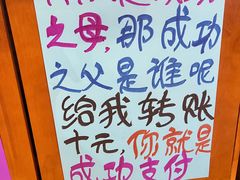 之母,那成功
之父是谁呢
给我转账
十元,你就是
成功支付